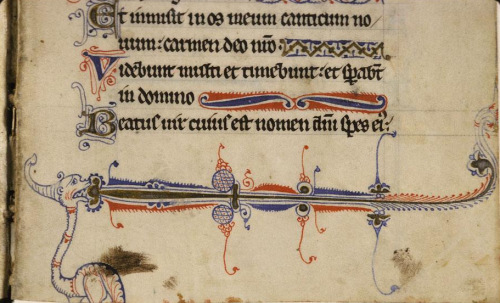 Et inmisit in os meum canticum no
uum: carmen deo nr̄o
Videbunt multi et timebunt: et sp̄abt̄
in domino
Beatus uir cuius est nomen dn̄i spes ei⁹: